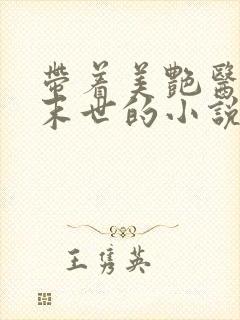 帶着美艷醫
末世的小說
王隽英